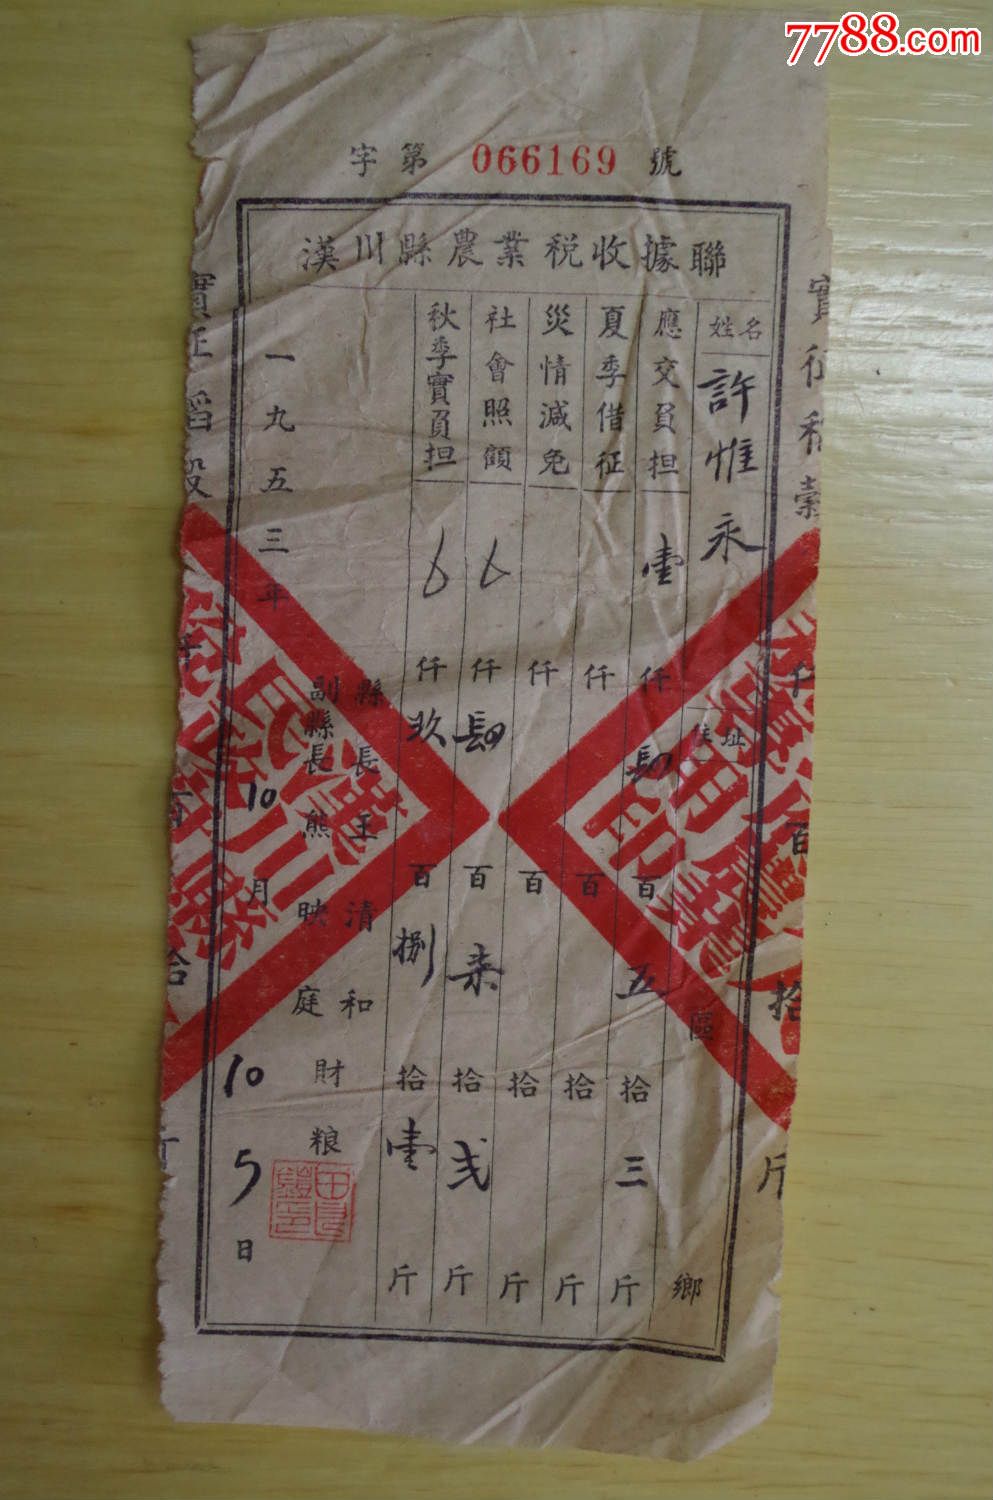 7788.com
字第 066169 號
漢川縣農業税收據聯
姓名 許惟永
住址 區 鄉
應交負担 壹仟 肆百 五拾 三斤
夏季借征 仟 百 拾 斤
災情減免 仟 百 拾 斤
社會照顧 仟 肆百 柒拾 弍斤
秋季實負担 仟 玖百 捌拾 壹斤
縣長王清和
副縣長熊映庭
財粮
一九五三年 10月 10 5日
實征稻穀 仟 百 拾 斤